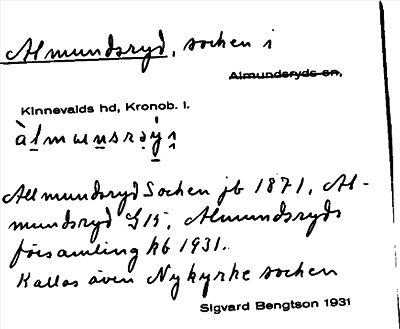 Almundsryd, socken i
Almundsryds sn,
Kinnevalds hd, Kronob. l.
Allmundsryd Socken jb 1871, Al-
mundsryd G 15, Almundsryds
församling kb 1931.
Kallas även Nykyrke socken
Sigvard Bengtson 1931